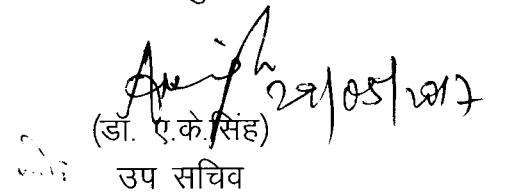 29/05/2017
(डॉ. ए.के.सिंह)
उप सचिव